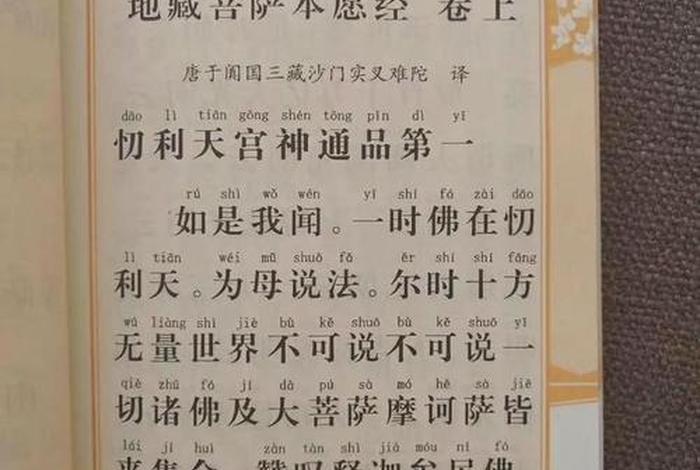 地藏菩萨本愿经 卷上
唐于阗国三藏沙门实叉难陀 译
dāo lì tiān gōng shén tōng pǐn dì yī
忉利天宫神通品第一
rú shì wǒ wén yī shí fó zài dāo
如是我闻。一时佛在忉
lì tiān wèi mǔ shuō fǎ ěr shí shí fāng
利天。为母说法。尔时十方
wú liàng shì jiè bù kě shuō bù kě shuō yī
无量世界不可说不可说一
qiè zhū fó jí dà pú sà mó hē sà jiē
切诸佛及大菩萨摩诃萨皆
lái jí huì zàn tàn shì jiā móu ní fó
来集会。赞叹释迦牟尼佛